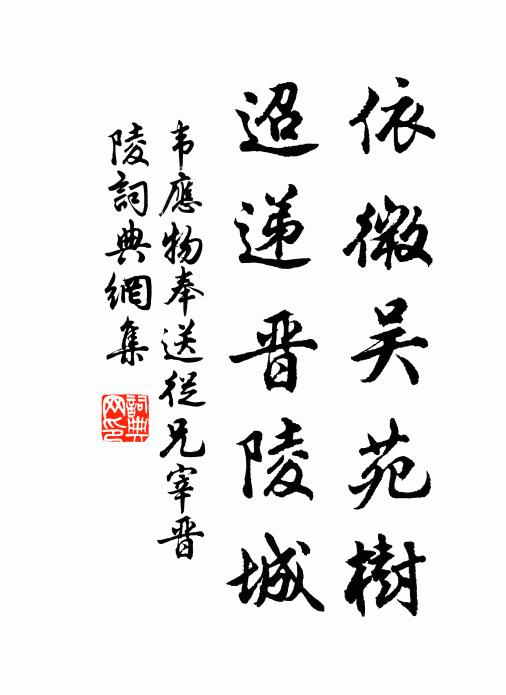 依微吴苑樹
迢递晋陵城
韦應物奉送從兄宰晋
陵詞典網集
詞典网印